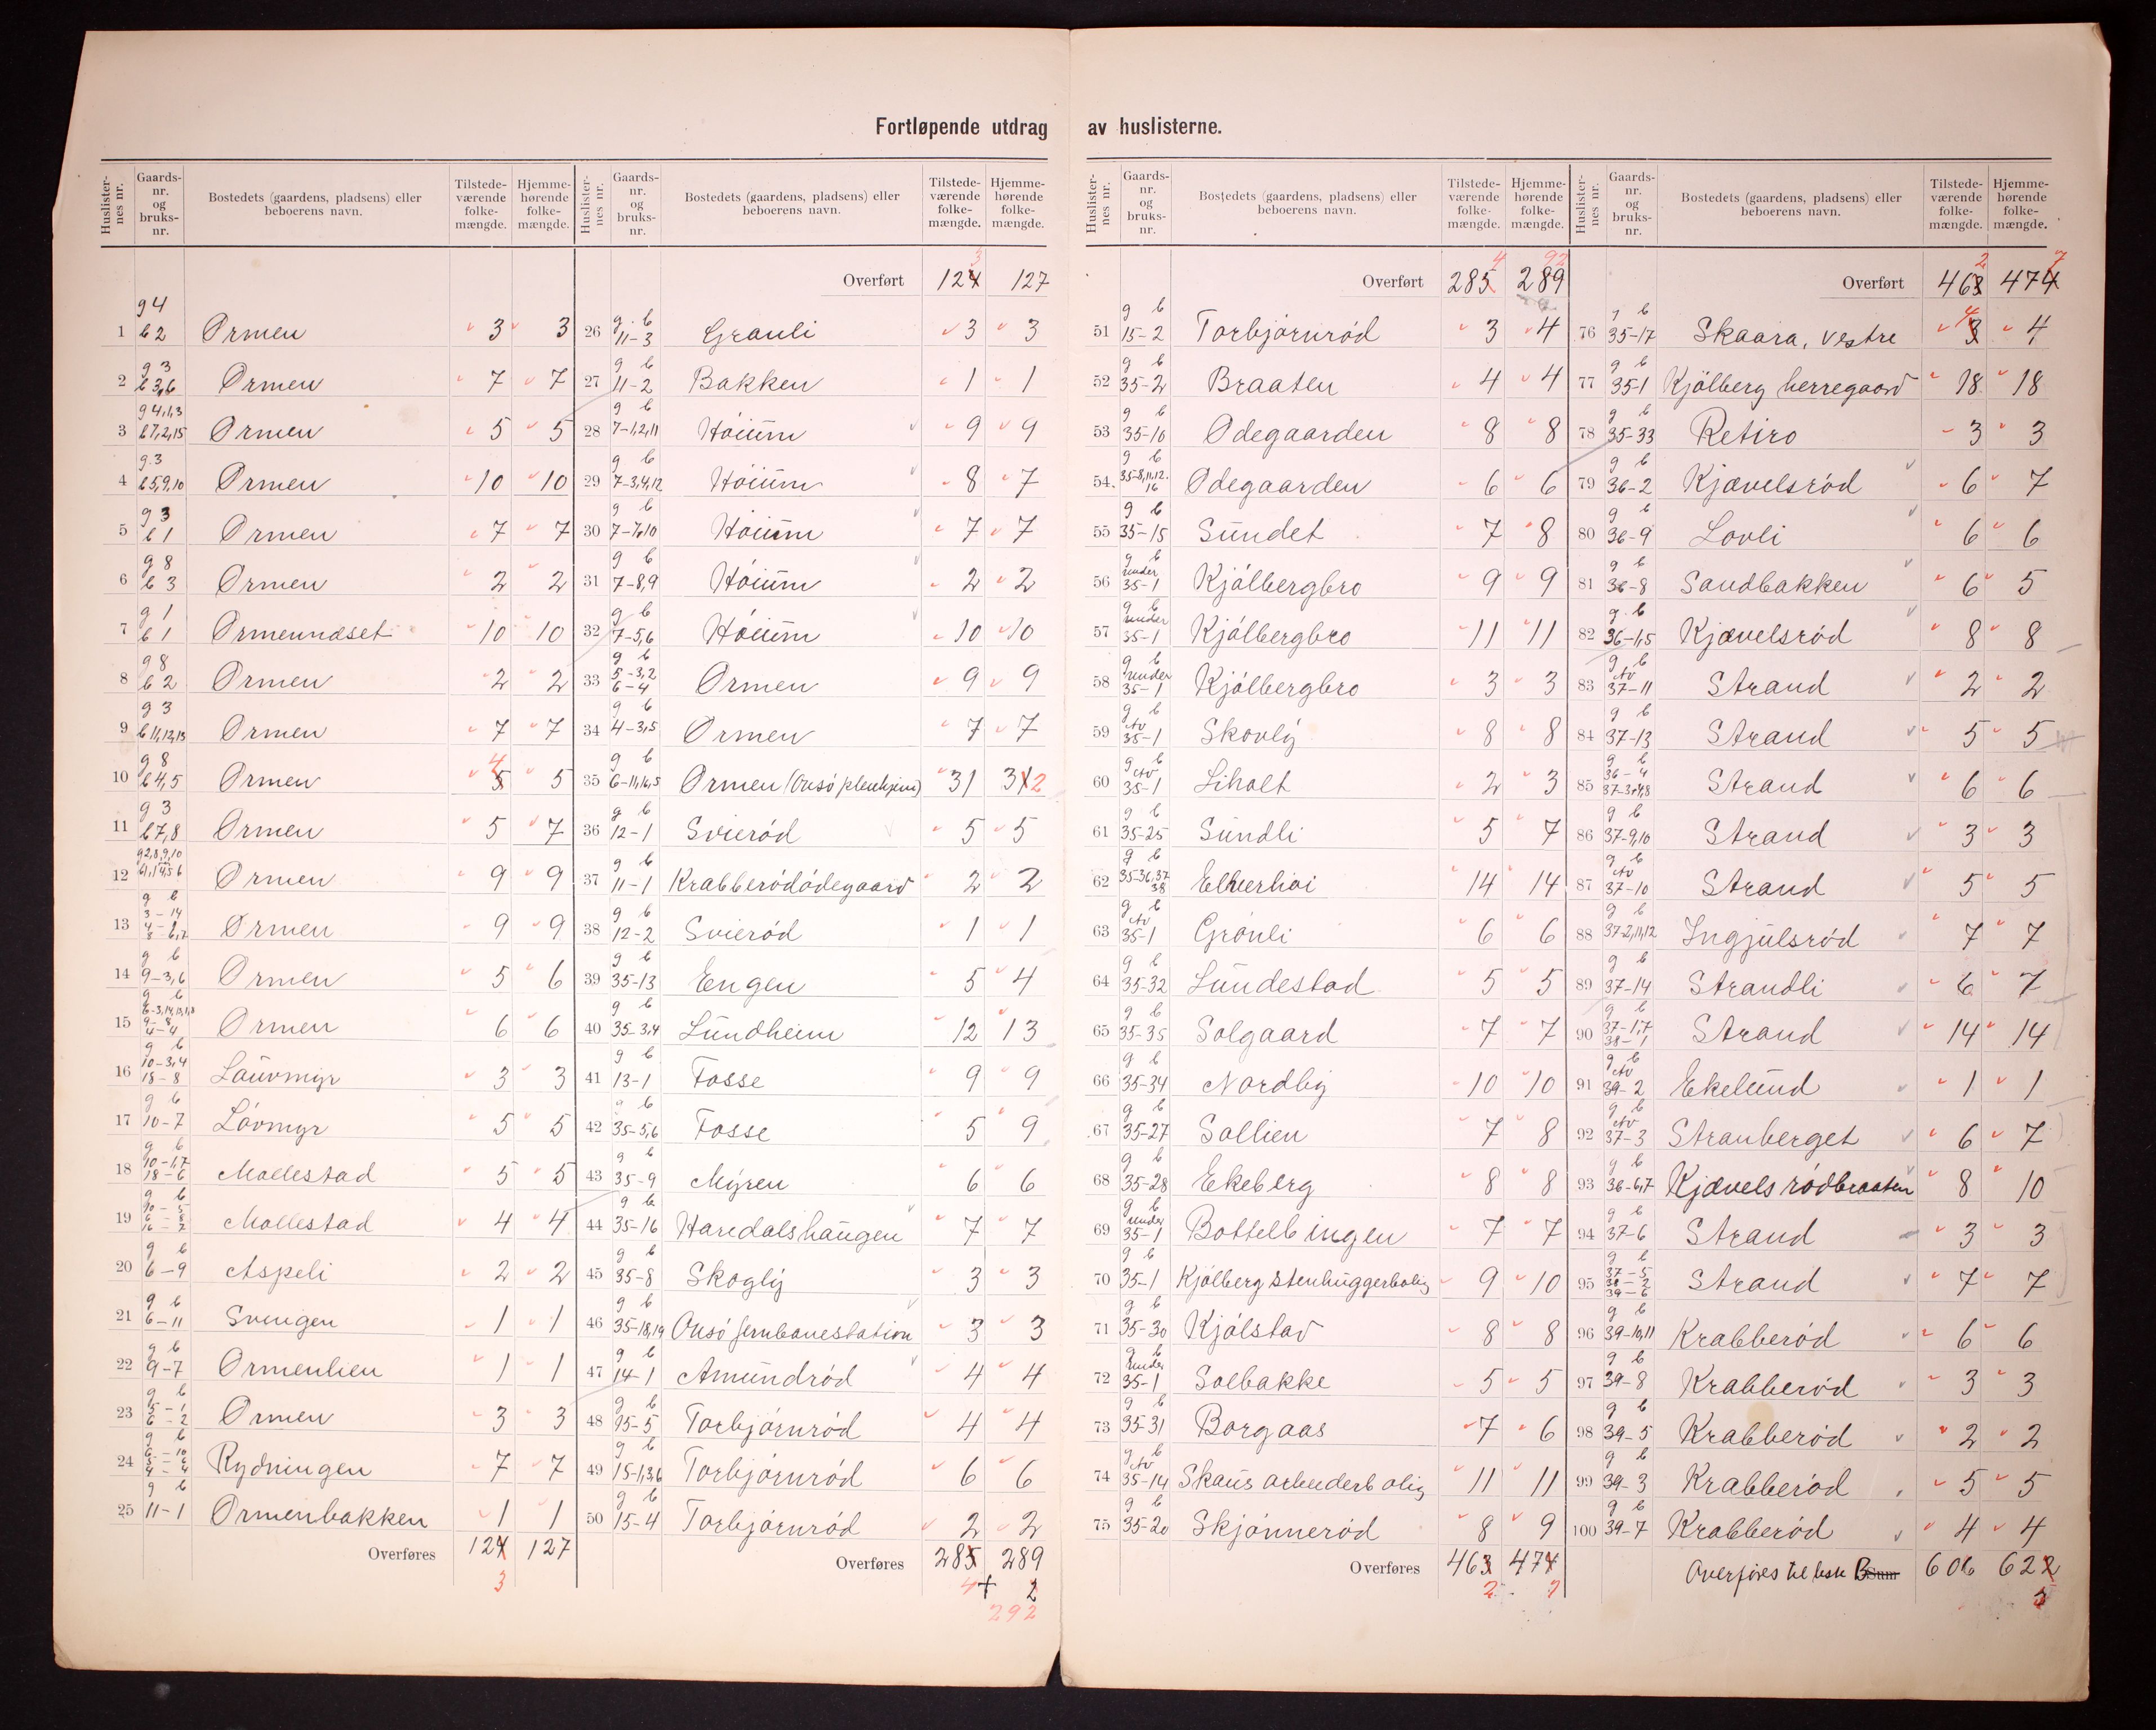 Fortløpende utdrag av huslisterne.
Huslisternes nr. Gaards-nr. og bruks-nr. Bostedets (gaardens, pladsens) eller beboerens navn. Tilstedeværende folkemængde. Hjemmehørende folkemængde.
1 g 4 b 2 Ormen 3 3
2 g 3 b 3,6 Ormen 7 7
3 g 4,1,3 b 7,2,15 Ormen 5 5
4 g 3 b 5,9,10 Ormen 10 10
5 g 3 b 1 Ormen 7 7
6 g 8 b 3 Ormen 2 2
7 g 1 b 1 Ormenundset 10 10
8 g 8 b 2 Ormen 2 2
9 g 3 b 11,12,13 Ormen 7 7
10 g 8 b 4,5 Ormen 5 4 5
11 g 3 b 7,8 Ormen 5 7
12 g 2,8,9,10 Ormen 9 9
13 g b 3-14 Ormen 9 9
14 g b 9-3,6 Ormen 5 6
15 g b Ormen 6 6
16 g b 10-3,4 18-8 Lauvmyr 3 3
17 g b 10-7 Lövmyr 5 5
18 g b 10-1,7 18-6 Mollestad 5 5
19 g b Mollestad 4 4
20 g b 6-9 Aspeli 2 2
21 g b 6-11 Svingen 1 1
22 g b 9-7 Ormenlien 1 1
23 g b 5-1 6-2 Ormen 3 3
24 g b Rydningen 7 7
25 g b 11-1 Ormenbakken 1 1
Overføres 124 127
3
Huslisternes nr. Gaards-nr. og bruks-nr. Bostedets (gaardens, pladsens) eller beboerens navn. Tilstedeværende folkemængde. Hjemmehørende folkemængde.
Overført 124 3 127
26 g b 11-3 Granli 3 3
27 g b 11-2 Bakken 1 1
28 g b 7-1,2,11 Höium 9 9
29 g b 7-3,4,12 Höium 8 7
30 g b 7-7,10 Höium 7 7
31 g b 7-8,9 Höium 2 2
32 g b 7-5,6 Höium 10 10
33 g b 5-3,2 6-4 Ormen 9 9
34 g b 4-3,5 Ormen 7 7
35 g b Ormen (Onsö pleiehjem) 31 31 2
36 g b 12-1 Svieröd 5 5
37 g b 11-1 Krabberödödegaard 2 2
38 g b 12-2 Svieröd 1 1
39 g b 35-13 Engen 5 4
40 g b 35-3,4 Lundheim 12 13
41 g b 13-1 Fosse 9 9
42 g b 35-5,6 Fosse 5 9
43 g b 35-9 Myren 6 6
44 g b 35-16 Haredalshaugen 7 7
45 g b 35-8 Skogly 3 3
46 g b 35-18,19 Onsö jernbanestation 3 3
47 g b 14-1 Amundröd 4 4
48 g b 15-5 Torbjörnröd 4 4
49 g b 15-1,3,6 Torbjörnröd 6 6
50 g b 15-4 Torbjörnröd 2 2
Overføres 285 289
4 + 2
292
Huslisternes nr. Gaards-nr. og bruks-nr. Bostedets (gaardens, pladsens) eller beboerens navn. Tilstedeværende folkemængde. Hjemmehørende folkemængde.
Overført 285 4 289 92
51 g b 15-2 Torbjörnröd 3 4
52 g b 35-2 Braaten 4 4
53 g b 35-10 Ödegaarden 8 8
54 35-8,11,12,16 Ödegaarden 6 6
55 g b 35-15 Sundet 7 8
56 g b under 35-1 Kjölbergbro 9 9
57 g b under 35-1 Kjölbergbro 11 11
58 g b under 35-1 Kjölbergbro 3 3
59 g b Av 35-1 Skovly 8 8
60 g b Av 35-1 Liholt 2 3
61 g b 35-25 Sundli 5 7
62 g b 35-36,37 38 14 14
63 g b Av 35-1 Grönli 6 6
64 g b 35-32 Lundestad 5 5
65 g b 35-35 Solgaard 7 7
66 g b 35-34 Nordby 10 10
67 g b 35-27 Sollien 7 8
68 g b 35-28 Ekeberg 8 8
69 g b under 35-1 Bottelbingen 7 7
70 g b 35-1 Kjölberg stenhuggerbolig 9 10
71 g b 35-30 Kjölstad 8 8
72 g b under 35-1 Solbakke 5 5
73 g b 35-31 Borgaas 7 6
74 g b Av 35-14 Skaus arbeiderbolig 11 11
75 g b 35-20 Skjönneröd 8 9
Overføres 463 474
2 7
Huslisternes nr. Gaards-nr. og bruks-nr. Bostedets (gaardens, pladsens) eller beboerens navn. Tilstedeværende folkemængde. Hjemmehørende folkemængde.
Overført 463 2 474 7
76 g b 35-17 Skaara, vestre 3 4 4
77 g b 35-1 Kjölberg herregaard 18 18
78 g b 35-33 Retiro 3 3
79 g b 36-2 Kjævelsröd 6 7
80 g b 36-9 Lovli 6 6
81 g b 36-8 Sandbakken 6 5
82 g b 36-1,5 Kjævelsröd 8 8
83 g b Av 37-11 Strand 2 2
84 g b 37-13 Strand 5 5
85 g b 36-4 37-3,4,8 Strand 6 6
86 g b 37-9,10 Strand 3 3
87 g b Av 37-10 Strand 5 5
88 g b 37-2,11,12 Ingjulsröd 7 7
89 g b 37-14 Strandli 6 7
90 g b 37-1,7 38-1 Strand 14 14
91 g b Av 39-2 Ekelund 1 1
92 g b Av 37-3 Stranberget 6 7
93 g b 36-6,7 Kjævelsrödbraaten 8 10
94 g b 37-6 Strand 3 3
95 g b 37-5 38-2 39-6 Strand 7 7
96 g b 39-10,11 Krabberöd 6 6
97 g b 39-8 Krabberöd 3 3
98 g b 39-5 Krabberöd 2 2
99 g b 39-3 Krabberöd 5 5
100 g b 39-7 Krabberöd 4 4
Overføres til liste B Sum 606 622
5